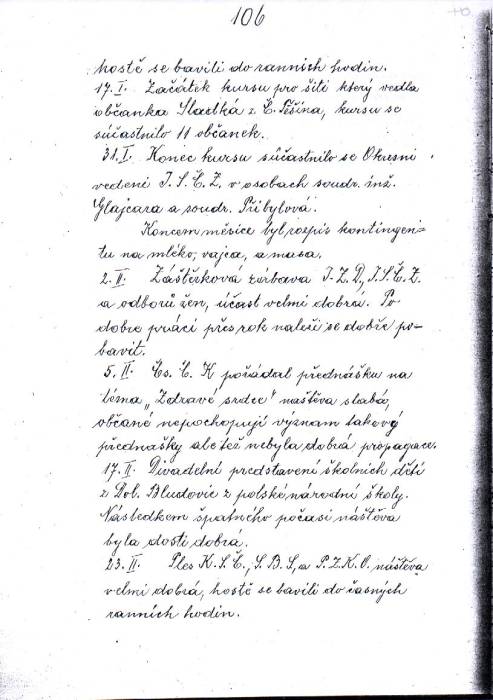 106
hostě se bavili do ranních hodin.
17. I. Začátek kursu pro šití který vedla
občanka Sladká z Č. Těšína, kursu se
súčastnilo 11 občanek.
31. I. Konec kursu súčastnilo se Okresní
vedení J. S. Č. Z. v osobach soudr. inž.
Glajcara a soudr. Přibylová.
Koncem měsíce byl rozpis kontingen-
tu na mléko, vajca, a masa.
2. II. Zástěrková zábava J. Z. D, J. S. Č. Z.
a odborů žen, účast velmi dobrá. Po
dobré práci přes rok naleží se dobře po-
bavit.
5. II. Čs. Č. K pořádal přednášku na
téma „Zdravé srdce" naštěva slabá,
občané nepochopují vyznam takový
přednašky ale též nebyla dobrá propagace.
17. II. Divadelní predstavení školních dětí
z Dol. Bludovic z polské národní školy.
Následkem špatného počasi náštěva
byla dosti dobrá.
23. II. Ples K. S. Č., S. B. S, a P. Z. K. O. náštěva
velmi dobrá, hostě se bavili do časných
ranních hodin.